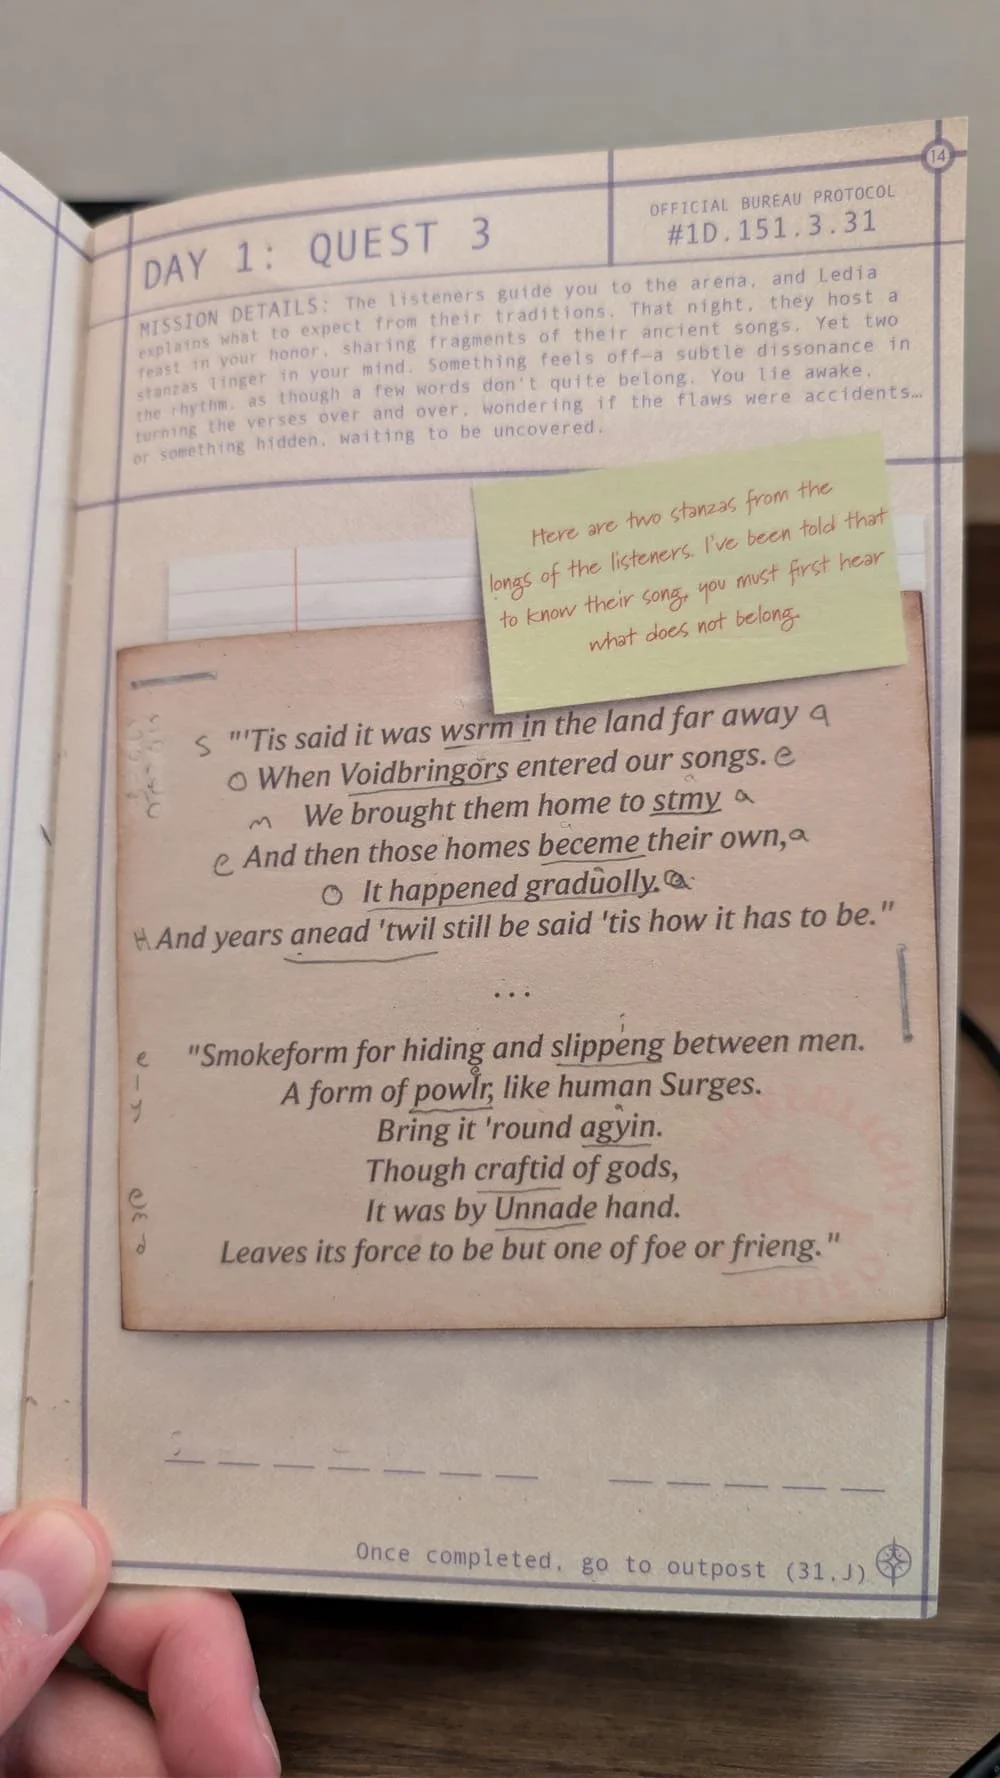 14
DAY 1: QUEST 3
OFFICIAL BUREAU PROTOCOL
#1D.151.3.31
MISSION DETAILS: The listeners guide you to the arena, and Ledia
explains what to expect from their traditions. That night, they host a
feast in your honor, sharing fragments of their ancient songs. Yet two
stanzas linger in your mind. Something feels off—a subtle dissonance in
the rhythm, as though a few words don't quite belong. You lie awake,
turning the verses over and over, wondering if the flaws were accidents…
or something hidden, waiting to be uncovered.
Here are two stanzas from the
longs of the listeners. I've been told that
to know their song, you must first hear
what does not belong.
s "'Tis said it was wsrm in the land far away a
o When Voidbringors entered our songs. e
m We brought them home to stmy a
e And then those homes beceme their own, a
o It happened graduolly. a
H And years anead 'twil still be said 'tis how it has to be."
...
"Smokeform for hiding and slippeng between men.
A form of powlr, like human Surges.
Bring it 'round agyin.
Though craftid of gods,
It was by Unnade hand.
Leaves its force to be but one of foe or frieng."
Once completed, go to outpost (31,J)